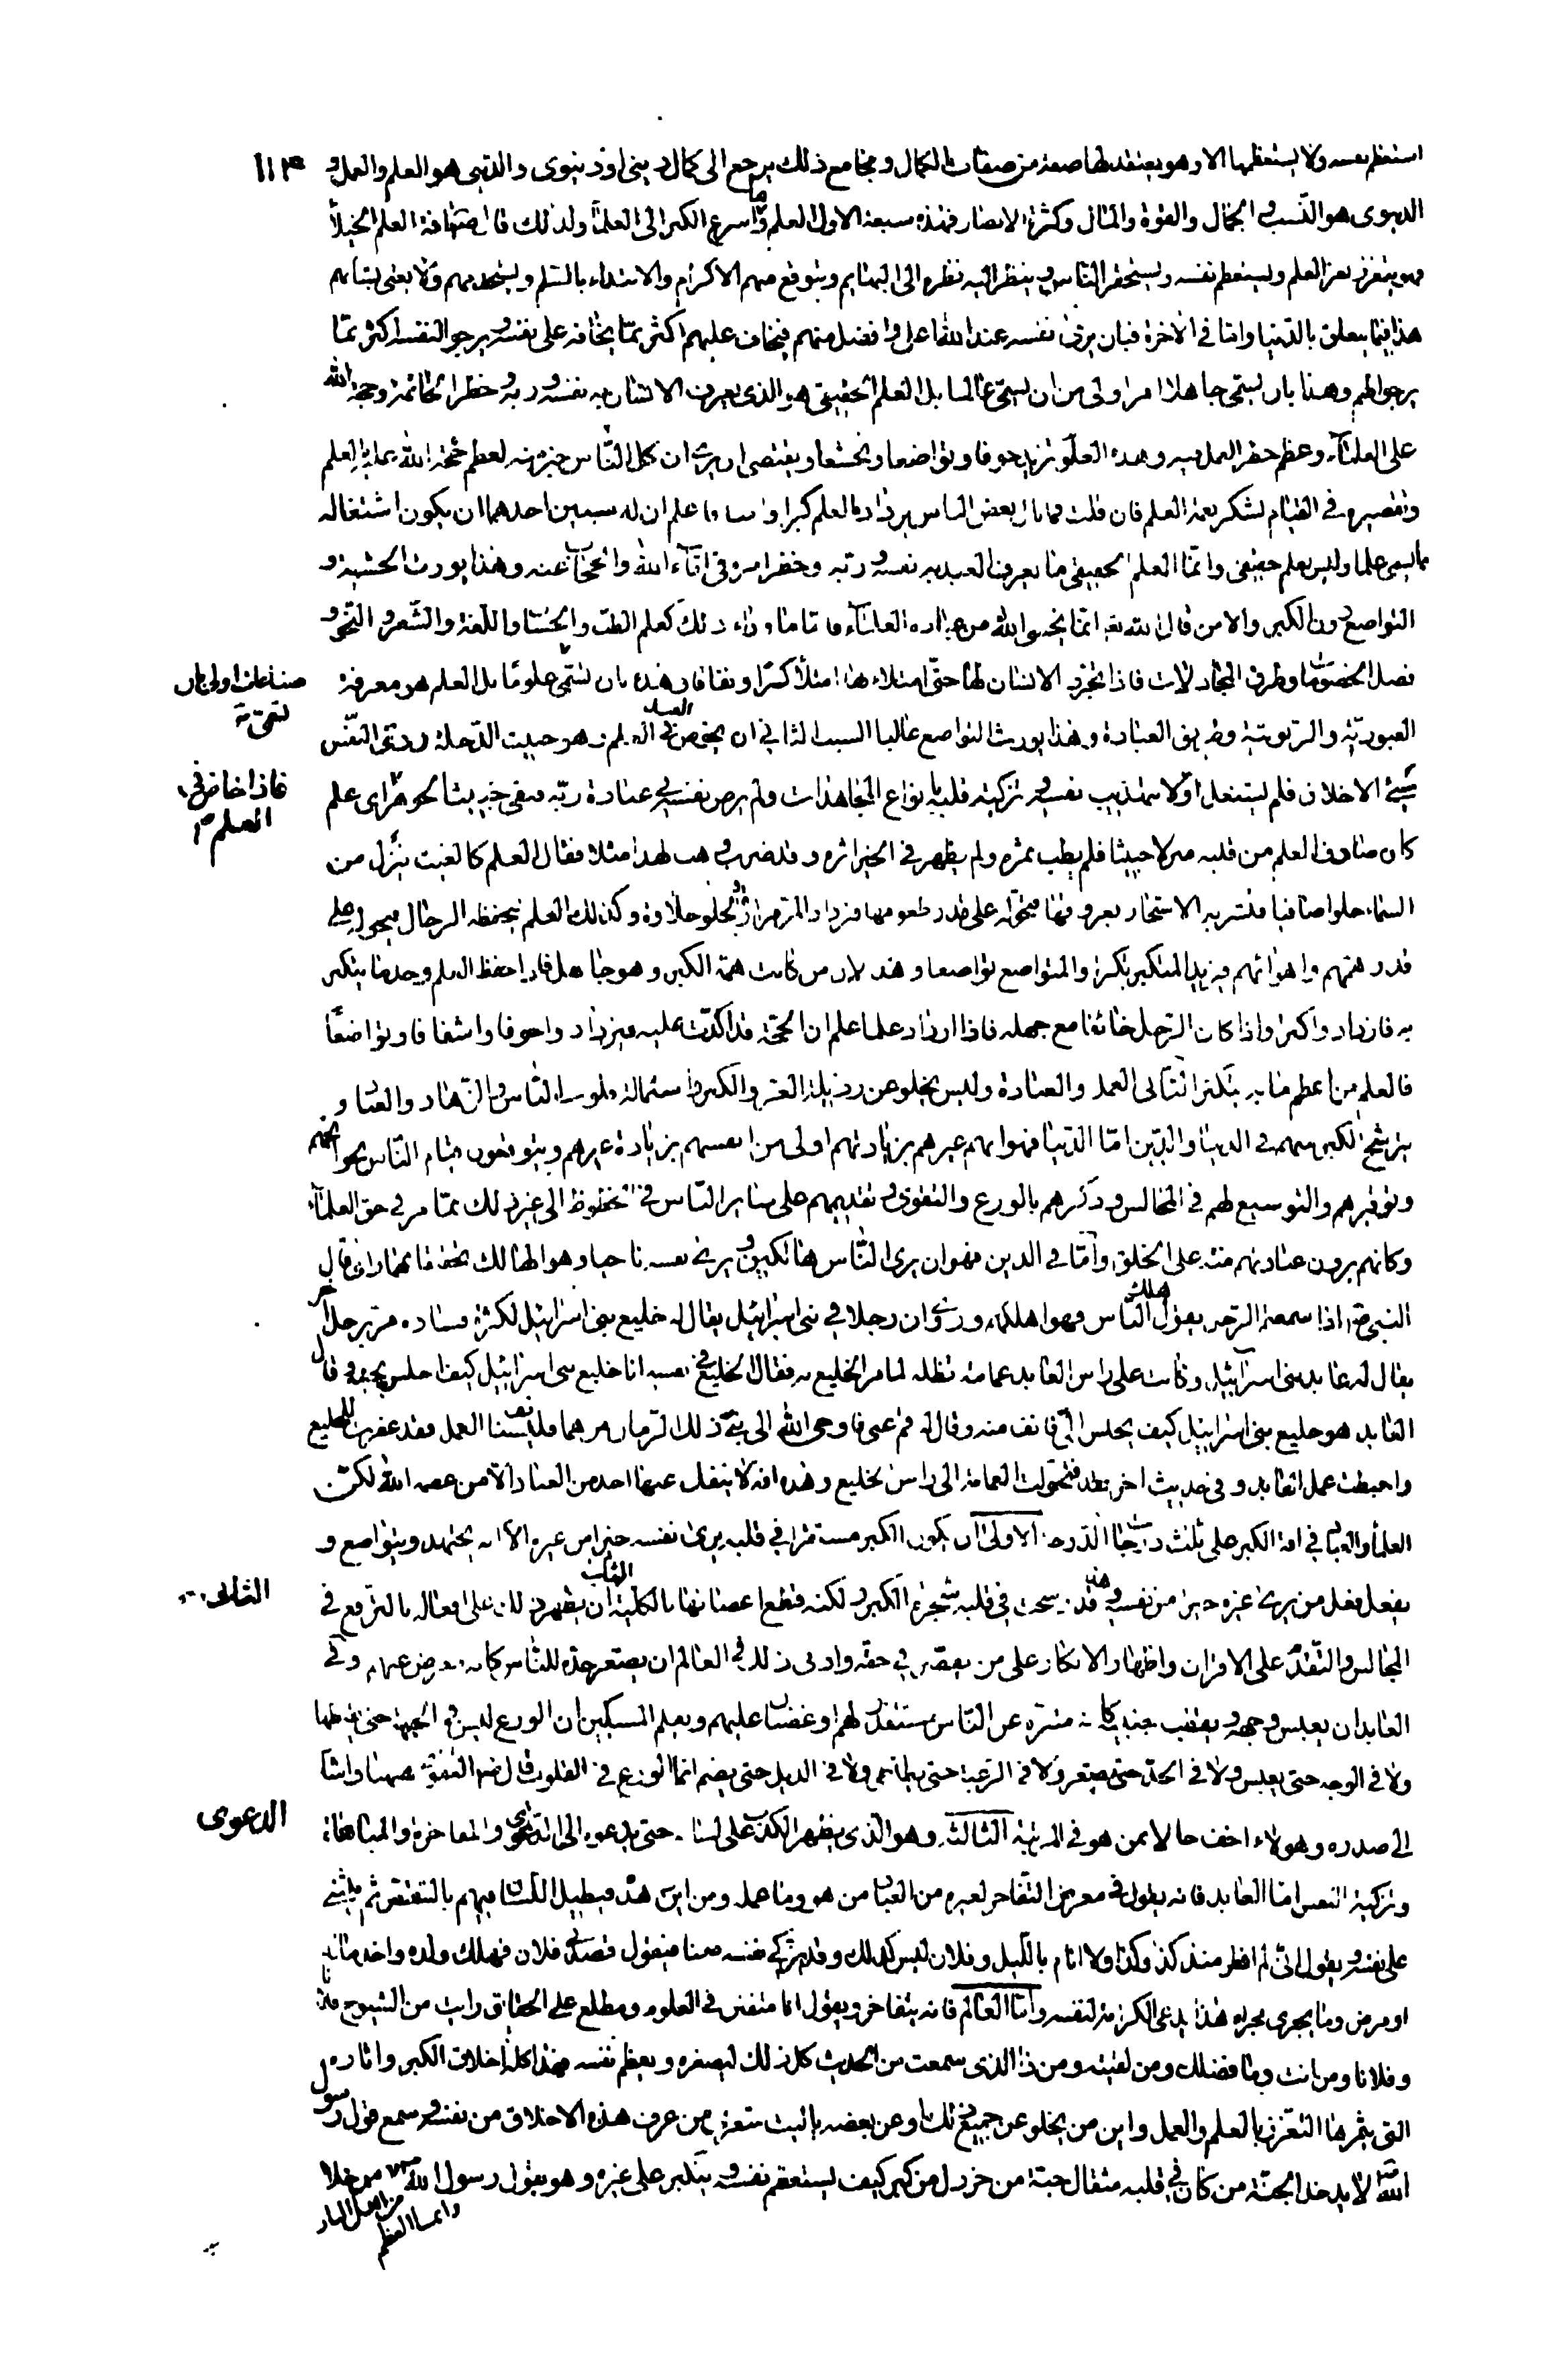 استعظم نفسه ولا يستعظمها الا وهو يعتقد لها صفة من صفات الكمال ومجامع ذلك يرجع الى كمال ديني او دنيوى والدينى هو العلم والعمل و
١١٣
الدنيوى هو النسب والجمال والقوة والمال وكثرة الانصار فهذه سبعة الاول العلم وما اسرع الكبر الى العلماء ولذلك قال ص افة العلم الخيلاء
فهو يتعزز بعز العلم ويستعظم نفسه ويستحقر الناس وينظر اليه نظره الى البهائم ويتوقع منهم الاكرام والابتداء بالسلم ويستخدمهم ولا يعنى بشانهم
هذا فيما يتعلق بالدنيا واما في الاخرة فبان يرى نفسه عند الله اعلى وافضل منهم فيخاف عليهم اكثر مما يخافه على نفسه ويرجو لنفسه اكثر مما
يرجو لهم وهذا بان يسمى جاهلا اولى من ان يسمى عالما بل العلم الحقيقى هو الذى يعرف الانسان به نفسه وربه وخطر الخاتمة وحجة الله
على العلماء وعظم خطر العلم فيه وهذه العلوم تزيد خوفا وتواضعا وتخشعا ويقتضى ان يرى ان كل الناس خير منه لعظم حجة الله عليه بالعلم
وتقصيره في القيام بشكر نعمة العلم فان قلت فما بال بعض الناس يزداد بالعلم كبرا وامنا فاعلم ان له سببين احدهما ان يكون اشتغاله
بما يسمى علما وليس بعلم حقيقى وانما العلم الحقيقى ما يعرف العبد به نفسه وربه وخطر امره في لقاء الله والحجاب عنه وهذا يورث الخشية و
التواضع دون الكبر والامن قال الله تعه انما يخشى الله من عباده العلماء فاما ما وراء ذلك كعلم الطب والحساب واللغة والشعر والنحو و
فصل الخصومات وطرق المجادلات فاذا تجرد الانسان لها حتى امتلاء بها امتلأ كبرا ونفاقا وهذه بان تسمى علوما بل العلم هو معرفة
صناعات اولى بان
العبودية والربوبية وطريق العبادة وهذا يورث التواضع غالبا السبب الثاني ان يخوض العبد في العلم وهو خبيث الدخلة ردى النفس
سيئ الاخلاق فلم يشتغل اولا بتهذيب نفسه وتزكية قلبه بانواع المجاهدات ولم يرض نفسه في عبادة ربه فبقى خبيث الجوهر اى علم
فاذا خاض في العلم
كان صادف العلم من قلبه منزلا خبيثا فلم يطب ثمره ولم يظهر في الخير اثره وقد ضرب وهب لهذا مثلا فقال العلم كالغيث ينزل من
السماء حلوا صافيا فتشربه الاشجار بعروقها فتحوله على قدر طعومها فيزداد المر مرارة والحلو حلاوة وكذلك العلم يحفظه الرجال فيحوله على
قدر هممهم واهوائهم فيزيد المتكبر تكبرا والمتواضع تواضعا وهذا لان من كانت همته الكبر وهو جاهل فاذا حفظ العلم وجد ما يتكبر
به فازداد كبرا واذا كان الرجل خائفا مع جهله فاذا ازداد علما علم ان الحجة قد اكدت عليه فيزداد خوفا واشفاقا وتواضعا
فالعلم من اعظم ما به يتكبر الثانى العمل والعبادة وليس يخلو عن رذيلة العز والكبر واستمالة قلوب الناس الزهاد والعباد و
يترشح الكبر منهم في الدنيا والدين اما الدنيا فهو انهم غيرهم بزيارتهم اولى من انفسهم بزيارة غيرهم ويتوقعون قيام الناس بحوائجهم
وتوقيرهم والتوسيع لهم في المجالس وذكرهم بالورع والتقوى وتقديمهم على سائر الناس في الحظوظ الى غير ذلك مما مر في حق العلماء
وكانهم يرون عبادتهم منة على الخلق واما في الدين فهو ان يرى الناس هالكين ويرى نفسه ناجيا وهو الهالك تحقيقا مهما راى قال
النبى ص اذا سمعتم الرجل يقول هلك الناس فهو اهلكهم وروى ان رجلا في بنى اسرائيل يقال له خليع بنى اسرائيل لكثرة فساده مر برجل اخر
يقال له عابد بنى اسرائيل وكانت على راس العابد غمامة تظله لما مر الخليع به فقال الخليع في نفسه انا خليع بنى اسرائيل كيف اجلس بجنبه وقال
العابد هو خليع بنى اسرائيل كيف يجلس الى فانف منه وقال له قم عنى فاوحى الله الى نبى ذلك الزمان مرهما فليستانفا العمل فقد غفرت للخليع
واحبطت عمل العابد وفى حديث اخر فتحولت الغمامة الى راس الخليع وهذه افة لا ينفك عنها احد من العباد الا من عصمه الله لكن
العلماء والعباد في افة الكبر على ثلث درجات الدرجة الاولى ان يكون الكبر مستقرا في قلبه يرى نفسه خيرا من غيره الا انه يجتهد ويتواضع و
يفعل فعل من يرى غيره خيرا من نفسه وهذا قد رسخت في قلبه شجرة الكبر ولكنه قطع اغصانها بالكلية الثانى ان يظهر ذلك على افعاله بالترفع في
الثانى
المجالس والتقدم على الاقران واظهار الانكار على من يقصر في حقه وادنى ذلك في العالم ان يصعر خده للناس كانه معرض عنهم وفي
العابد ان يعبس وجهه ويقطب جبينه كانه متنزه عن الناس مستقذر لهم او غضبان عليهم ويعلم المسكين ان الورع ليس في الجبهة حتى يقطبها
ولا في الوجه حتى يعبس ولا في الخد حتى يصعر ولا في الرقبة حتى يطاطى ولا في الذيل حتى يضم انما الورع في القلوب قال ص التقوى ههنا واشار
الى صدره وهولاء اخف حالا ممن هو في المرتبة الثالثة وهو الذى يظهر الكبر على لسانه حتى يدعوه الى الدعوى والمفاخرة والمباهاة
الدعوى
وتزكية النفس اما العابد فانه يقول في معرض التفاخر لغيره من العباد من هو وما عمله ومن اين زهده فيطيل اللسان فيهم بالتنقص ثم يثنى
على نفسه ويقول انى لم افطر منذ كذا وكذا ولا انام بالليل وفلان ليس كذلك وقد يزكى نفسه ضمنا فيقول قصدنى فلان فهلك ولده واخذ ماله
او مرض وما يجرى مجراه هذا يدعى الكرامة لنفسه واما العالم فانه يتفاخر ويقول انا متفنن في العلوم ومطلع على الحقايق رايت من الشيوخ فلانا
وفلانا ومن انت وما فضلك ومن لقيته ومن ذا الذى سمعت من الحديث كل ذلك ليصغره ويعظم نفسه فهذا كله اخلاق الكبر واثاره
التى يثمرها التعزز بالعلم والعمل واين من يخلو عن جميع ذلك او عن بعضه ياليت شعرى من عرف هذه الاخلاق من نفسه وسمع قول رسول
الله ص لا يدخل الجنة من كان في قلبه مثقال حبة من خردل من كبر كيف يستعظم نفسه ويتكبر على غيره وهو بقول رسول الله ص
من اهل النار
وانما العظيم